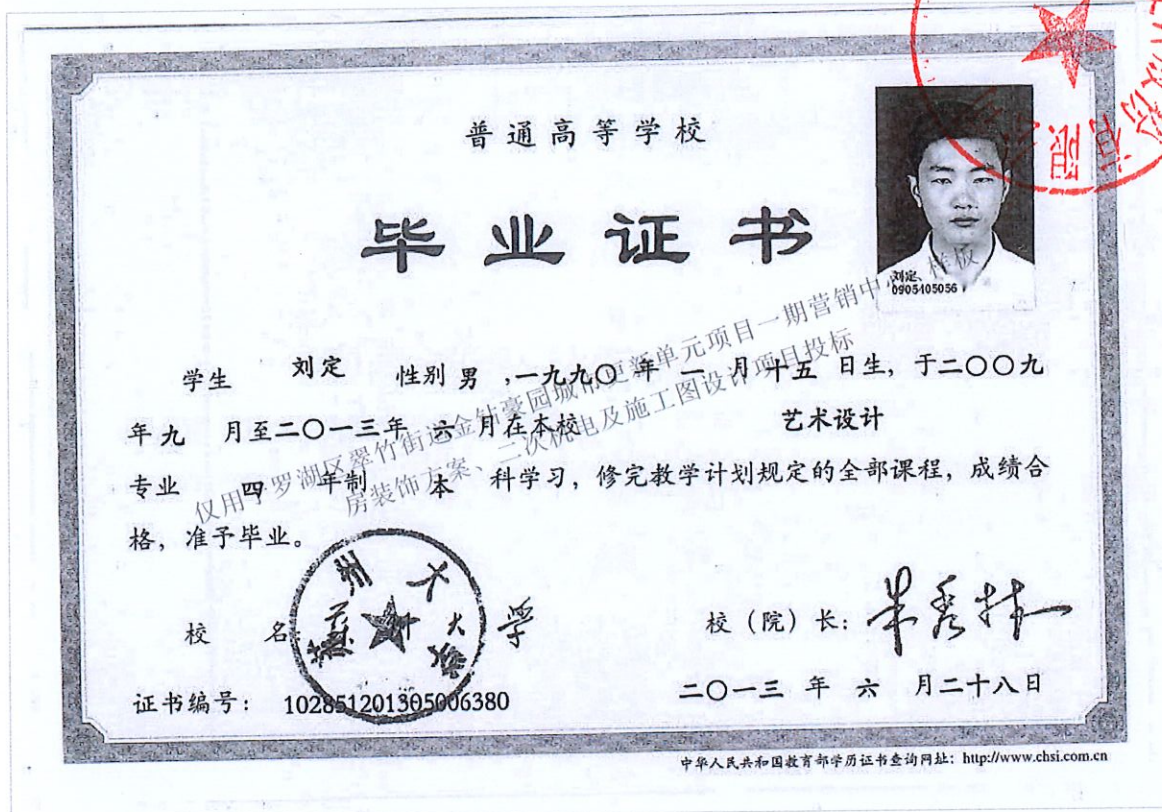 普通高等学校
毕业证书
刘定、
0905405056
学生 刘定 性别 男 ，一九九〇 年 一 月 十五 日生，于二〇〇九
年 九 月至二〇一三年 六 月在本校 艺术设计
专业 四 年制 本 科学习，修完教学计划规定的全部课程，成绩合
格，准予毕业。
仅用于罗湖区翠竹街道金钻豪园城市更新单元项目一期营销中心、样板
房装饰方案、二次机电及施工图设计项目投标
校 名 苏州大学
校（院）长：朱秀林
证书编号： 102851201305006380
二〇一三 年 六 月二十八日
中华人民共和国教育部学历证书查询网址：http://www.chsi.com.cn
有限